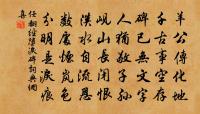 羊公傳化地
千古事空存
碑已無文字
人猶敬子孫
峴山長閉恨
漢水自流恩
數處煙嵐色
分明是淚痕
任翻經墮淚碑詞典網